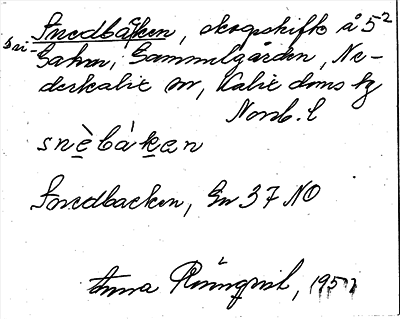 Snedbacken, skogskifte å 5²
Sahn, Gammelgården, Ne-
derkalix sn, Kalix doms hg
Norrb. l
snèbáken
Snedbacken, Gn 37 NO
Anna Rönnqvist, 1951